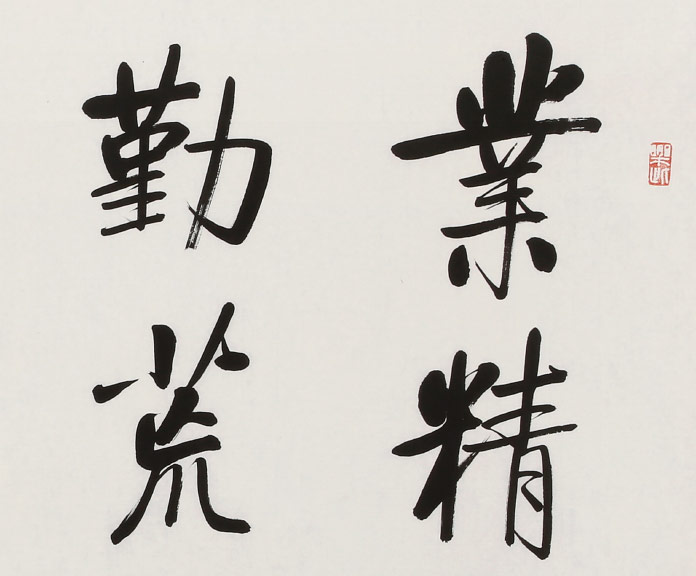 業精
勤荒